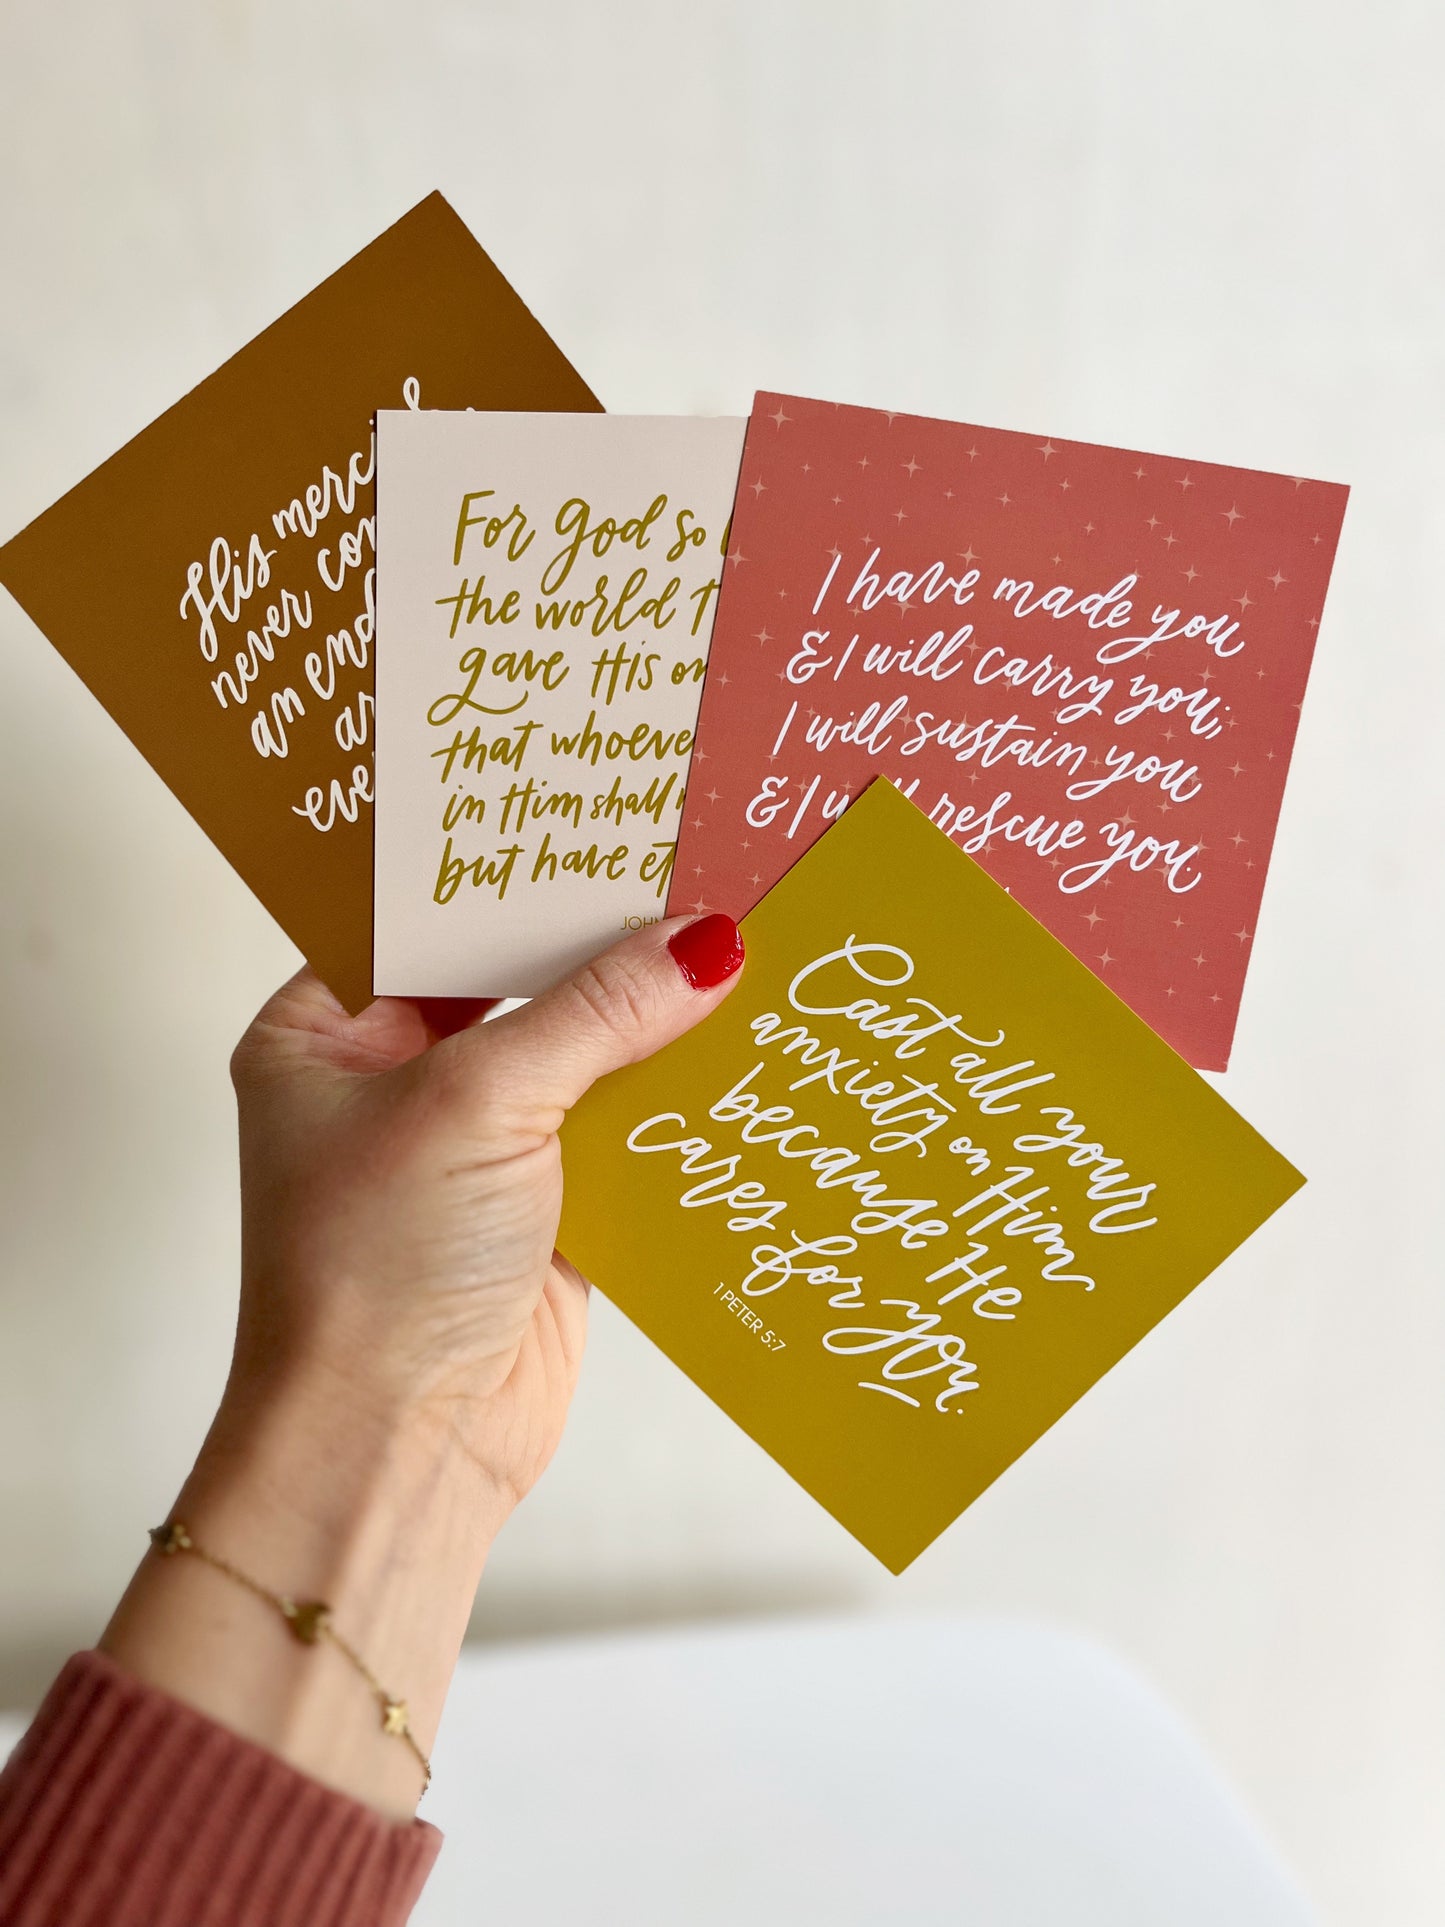 His
never
an end
For God so
the world
gave His
that
in Him shall
but have
JOHN
I have made you
& I will carry you;
I will sustain you
& I rescue you.
Cast all your
anxiety on Him
because He
cares for you.
1 PETER 5:7